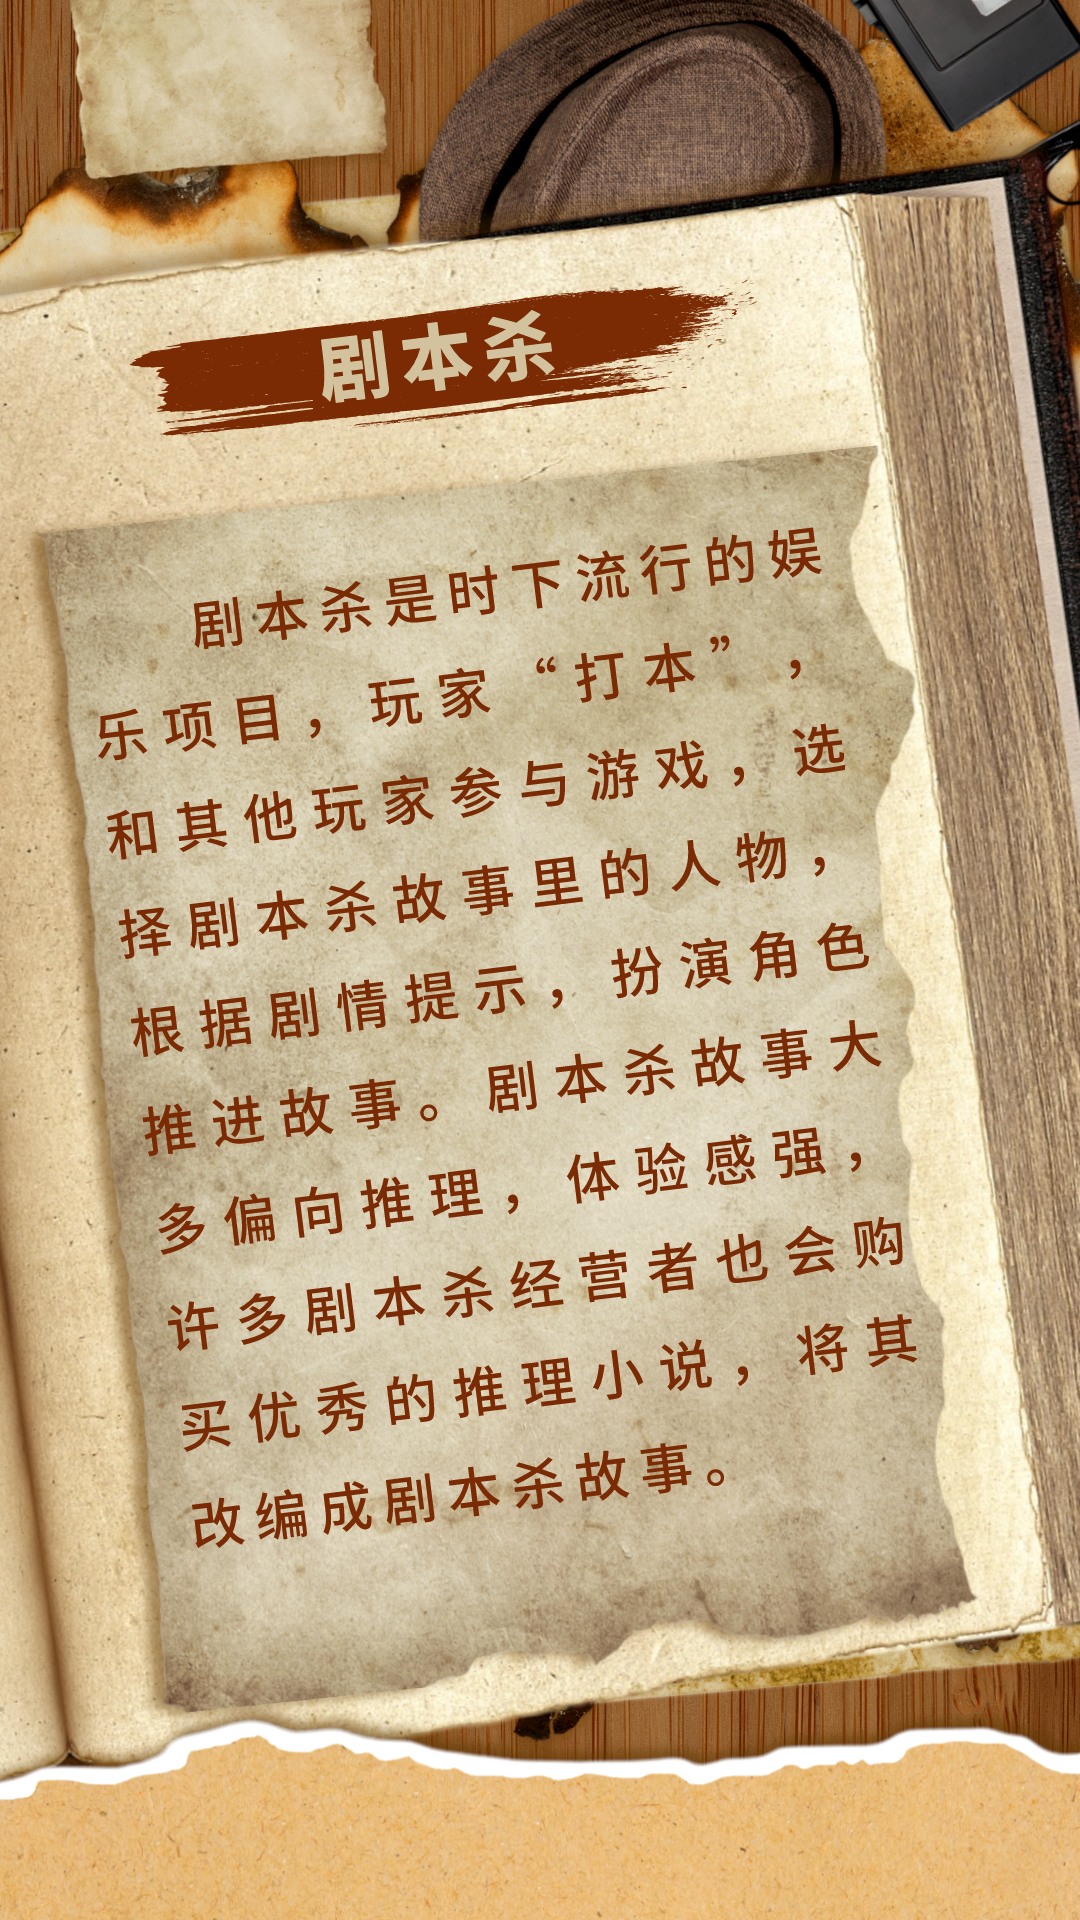 剧本杀
剧本杀是时下流行的娱
乐项目，玩家“打本”，
和其他玩家参与游戏，选
择剧本杀故事里的人物，
根据剧情提示，扮演角色
推进故事。剧本杀故事大
多偏向推理，体验感强，
许多剧本杀经营者也会购
买优秀的推理小说，将其
改编成剧本杀故事。